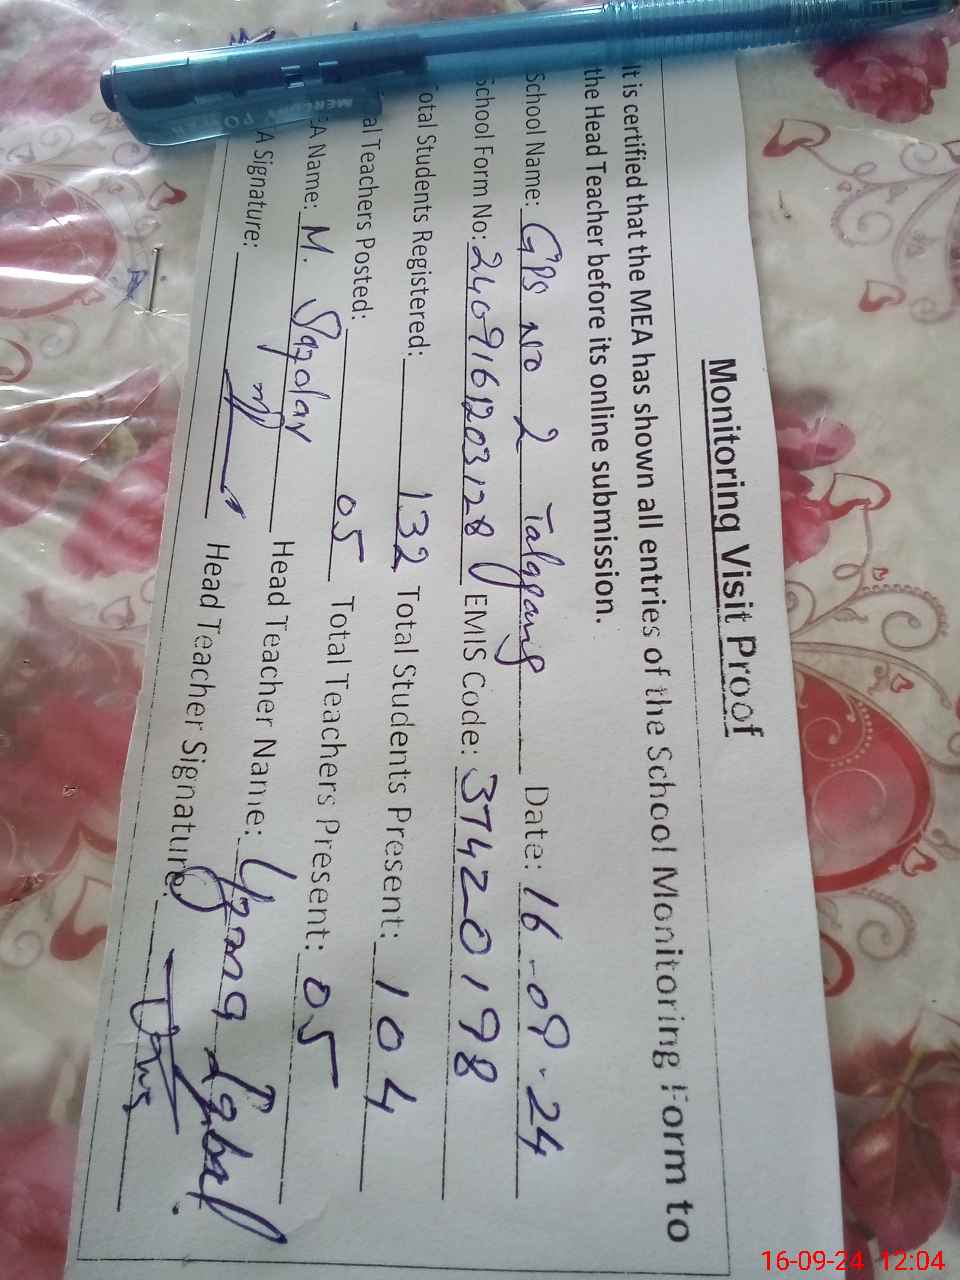 Monitoring Visit Proof
It is certified that the MEA has shown all entries of the School Monitoring Form to
the Head Teacher before its online submission.
School Name: GPS No 2 Talagang Date: 16-09-24
School Form No: 2409161203128 EMIS Code: 37420198
otal Students Registered: 132 Total Students Present: 104
al Teachers Posted: 05 Total Teachers Present: 05
EA Name: M. Safdar Head Teacher Name: Iqbal
A Signature: Head Teacher Signature:
MERCURY
POINTER
16-09-24 12:04